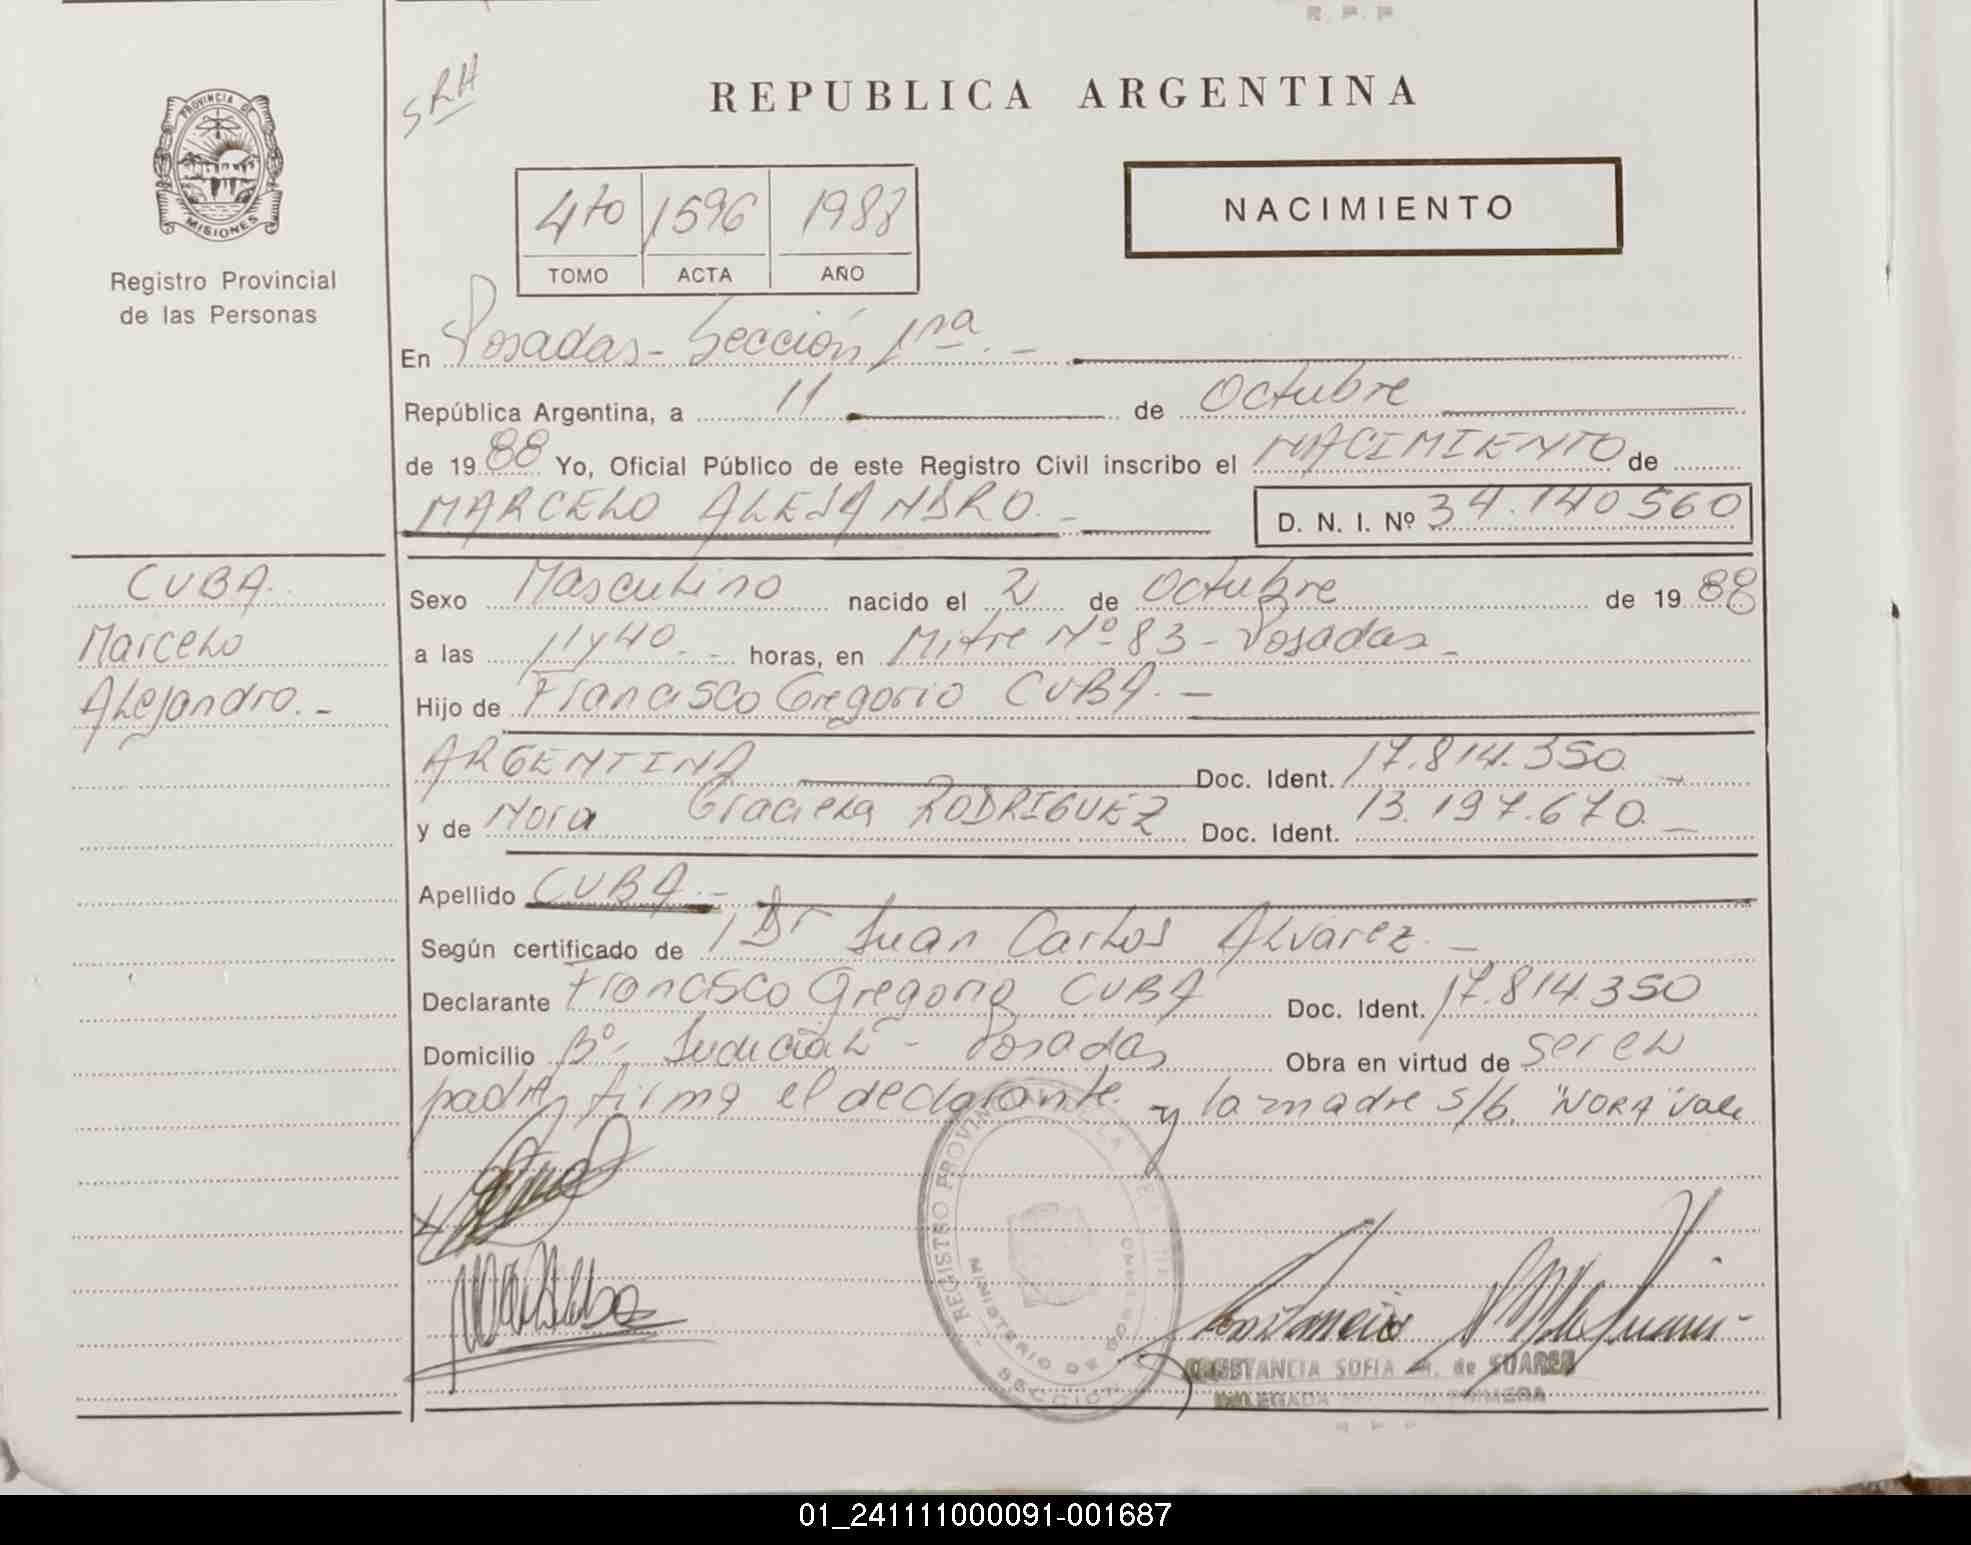 R. P. P
SRH
PROVINCIA DE
MISIONES
Registro Provincial
de las Personas
REPUBLICA ARGENTINA
4to 1596 1988
TOMO ACTA AÑO
NACIMIENTO
En Posadas - Sección 1ra. -
República Argentina, a 11 de Octubre
de 1988 Yo, Oficial Público de este Registro Civil inscribo el NACIMIENTO de
MARCELO ALEJANDRO. -
D. N. I. Nº 34.140560
CUBA.
Marcelo
Alejandro. -
Sexo Masculino nacido el 2 de Octubre de 1988
a las 11 y 40. - horas, en Mitre Nº 83 - Posadas -
Hijo de Francisco Gregorio CUBA. -
ARGENTINA Doc. Ident. 17.814.350. -
y de Nora Graciela RODRIGUEZ Doc. Ident. 13.197.670. -
Apellido CUBA. -
Según certificado de Dr Juan Carlos Alvarez. -
Declarante Francisco Gregorio CUBA Doc. Ident. 17.814.350
Domicilio Bº Judicial - Posadas Obra en virtud de ser el
padre, firma el declarante. y la madre s/b. "NORA" Vale
REGISTRO PROVINCIAL DE LAS PERSONAS
MINISTERIO DE GOBIERNO
SECCION
CONSTANCIA SOFIA M. de SUAREZ
DELEGADA PRIMERA
01_241111000091-001687